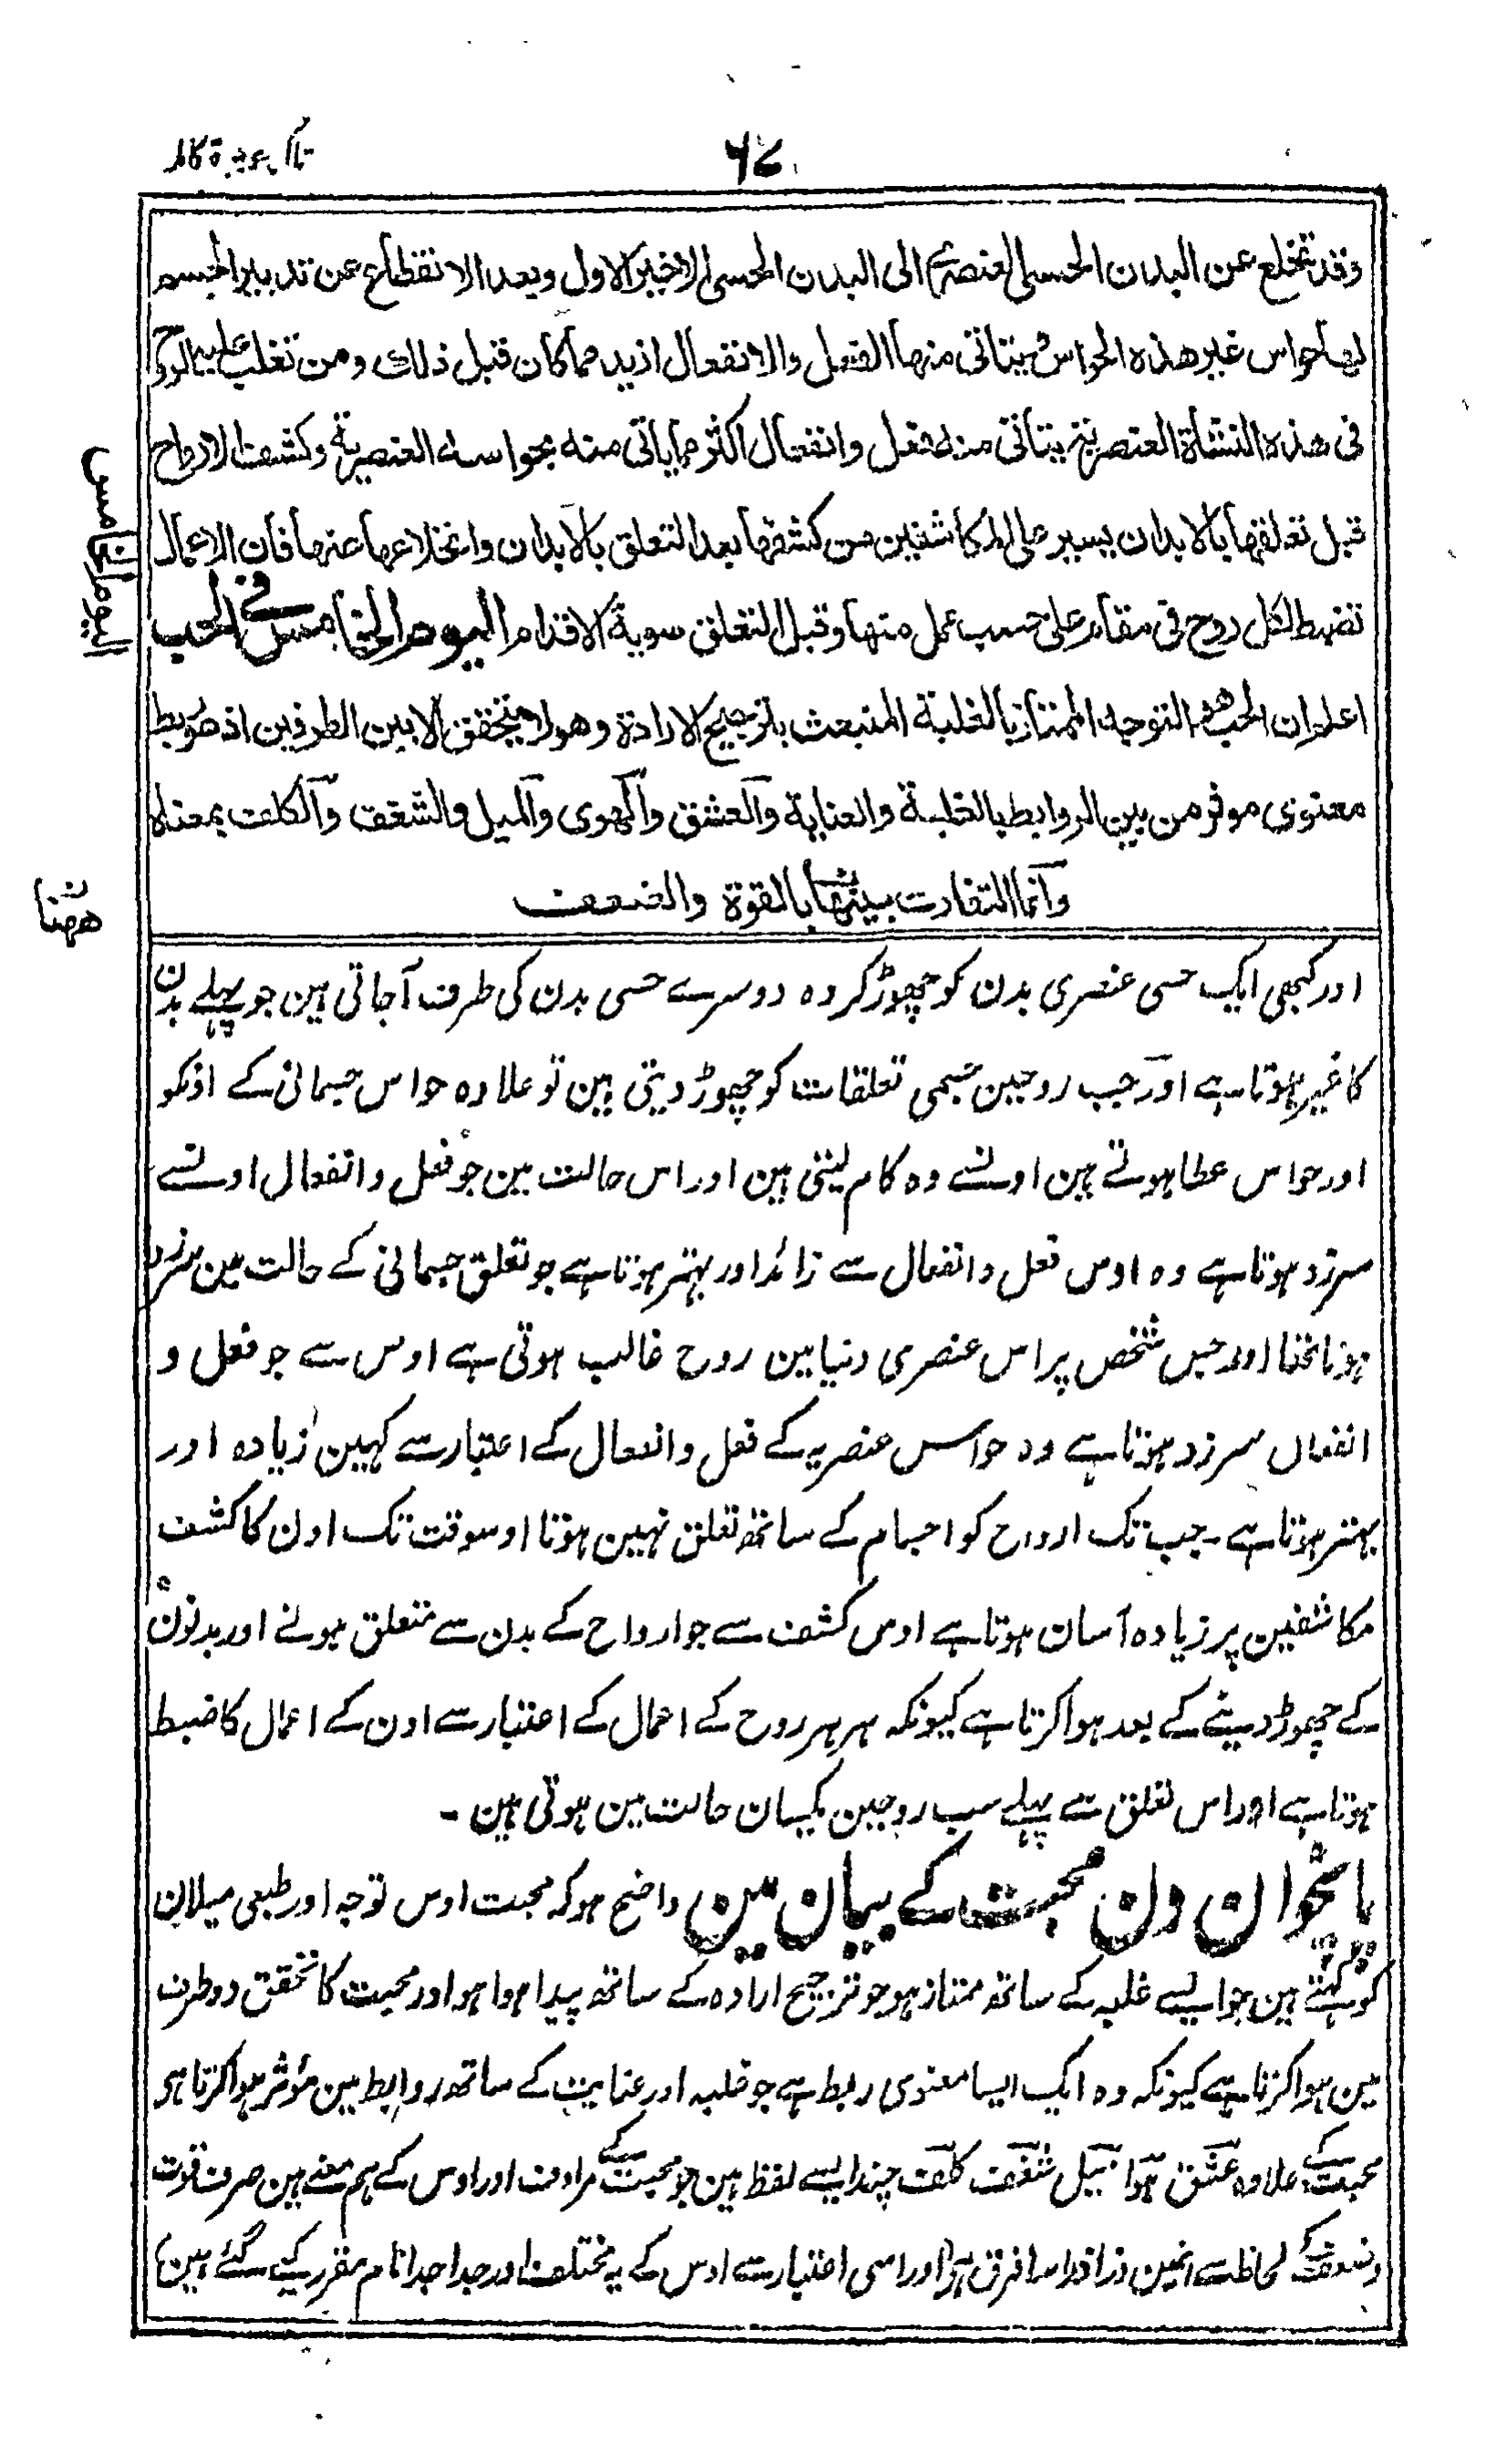 ۶۷
وقد تنخلع عن البدن الحسی العنصری الی البدن الحسی الاخیر الاول وبعد الانقطاع عن تدبیر الجسم
لها حواس غیر هذه الحواس یتاتی منها الفعل والانفعال ازید مما کان قبل ذلك ومن تغلب علیه الروح
فی هذه النشاة العنصریة یتاتی منه فعل وانفعال اکثر مما یاتی منه بحواسه العنصریة وکشف الارواح
قبل تعلقها بالابدان یسیر علی المکاشفین من کشفها بعد التعلق بالابدان وانخلاعها عنها فان الاعمال
تضبط لکل روح فی مقام علی حسب عمل منها وقبل التعلق سویة الاقدام الیوم الخامس فی الحب
اعلم ان الحب هو التوجه الممتاز بالغلبة المنبعث بترجیح الارادة وهو لا یتحقق الا بین الطرفین اذ هو ربط
معنوی موثر من بین الروابط بالغلبة والعنایة والعشق والهوی والمیل والشغف والکلف بمعناه
وانما التفاوت بینها بالقوة والضعف
الیوم الخامس
ههنا
اور کبھی ایک حسی عنصری بدن کو چھوڑ کر وہ دوسرے حسی بدن کی طرف آجاتی ہین جو پہلے بدن
کا غیر ہوتا ہے اور جب روحین جسمی تعلقات کو چھوڑ دیتی ہین تو علاوہ حواس جسمانی کے اونکو
اور حواس عطا ہوتے ہین اونسے وہ کام لیتی ہین اور اس حالت مین جو فعل و انفعال اونسے
سرزد ہوتا ہے وہ اوس فعل و انفعال سے زائد اور بہتر ہوتا ہے جو تعلق جسمانی کے حالت مین سرزد
ہوتا تھا اور جس شخص پر اس عنصری دنیا مین روح غالب ہوتی ہے اوس سے جو فعل و
انفعال سرزد ہوتا ہے وہ حواس عنصریہ کے فعل و انفعال کے اعتبار سے کہین زیادہ اور
بہتر ہوتا ہے۔ جب تک ارواح کو اجسام کے ساتھ تعلق نہین ہوتا اوسوقت تک اون کا کشف
مکاشفین پر زیادہ آسان ہوتا ہے اوس کشف سے جو ارواح کے بدن سے متعلق ہونے اور بدنون
کے چھوڑ دینے کے بعد ہوا کرتا ہے کیونکہ ہر ہر روح کے اعمال کے اعتبار سے اون کے اعمال کا ضبط
ہوتا ہے اور اس تعلق سے پہلے سب روحین یکسان حالت مین ہوتی ہین ۔
پانچوان دن محبت کے بیان مین واضح ہو کہ محبت اوس توجہ اور طبعی میلان
کو کہتے ہین جو ایسے غلبہ کے ساتھ ممتاز ہو جو ترجیح ارادہ کے ساتھ پیدا ہوا ہو اور محبت کا تحقق دو طرف
مین ہوا کرتا ہے کیونکہ وہ ایک ایسا معنوی ربط ہے جو غلبہ اور عنایت کے ساتھ روابط مین مؤثر ہوا کرتا ہو
محبت کے علاوہ عشق ہوا میل شغف کلف چند ایسے لفظ ہین جو محبت کے مرادف اور اوس کے ہم معنے ہین صرف قوت
وضعف کے لحاظ سے انمین ذرا ذرا سا فرق ہے (اور اسی اعتبار سے اوس کے یہ مختلف اور جدا جدا نام مقرر کیے گئے ہین)